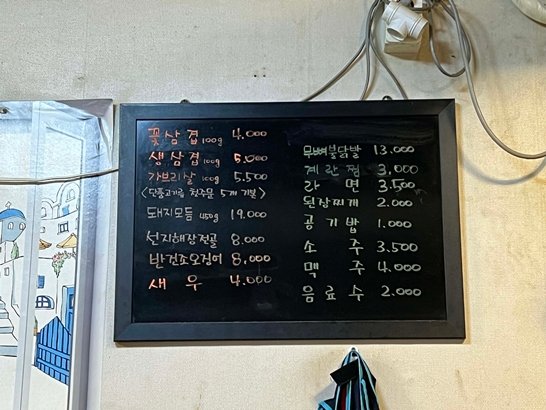 꽃삼겹 100g 4.000
생삼겹 100g 5.000
가브리살 100g 5.500
<단품고기류 첫주문 5개 기본>
돼지모듬 450g 19.000
선지해장전골 8.000
반건조오징어 8.000
새우 4.000
무뼈불닭발 13.000
계란찜 3.000
라면 3.500
된장찌개 2.000
공기밥 1.000
소주 3.500
맥주 4.000
음료수 2.000